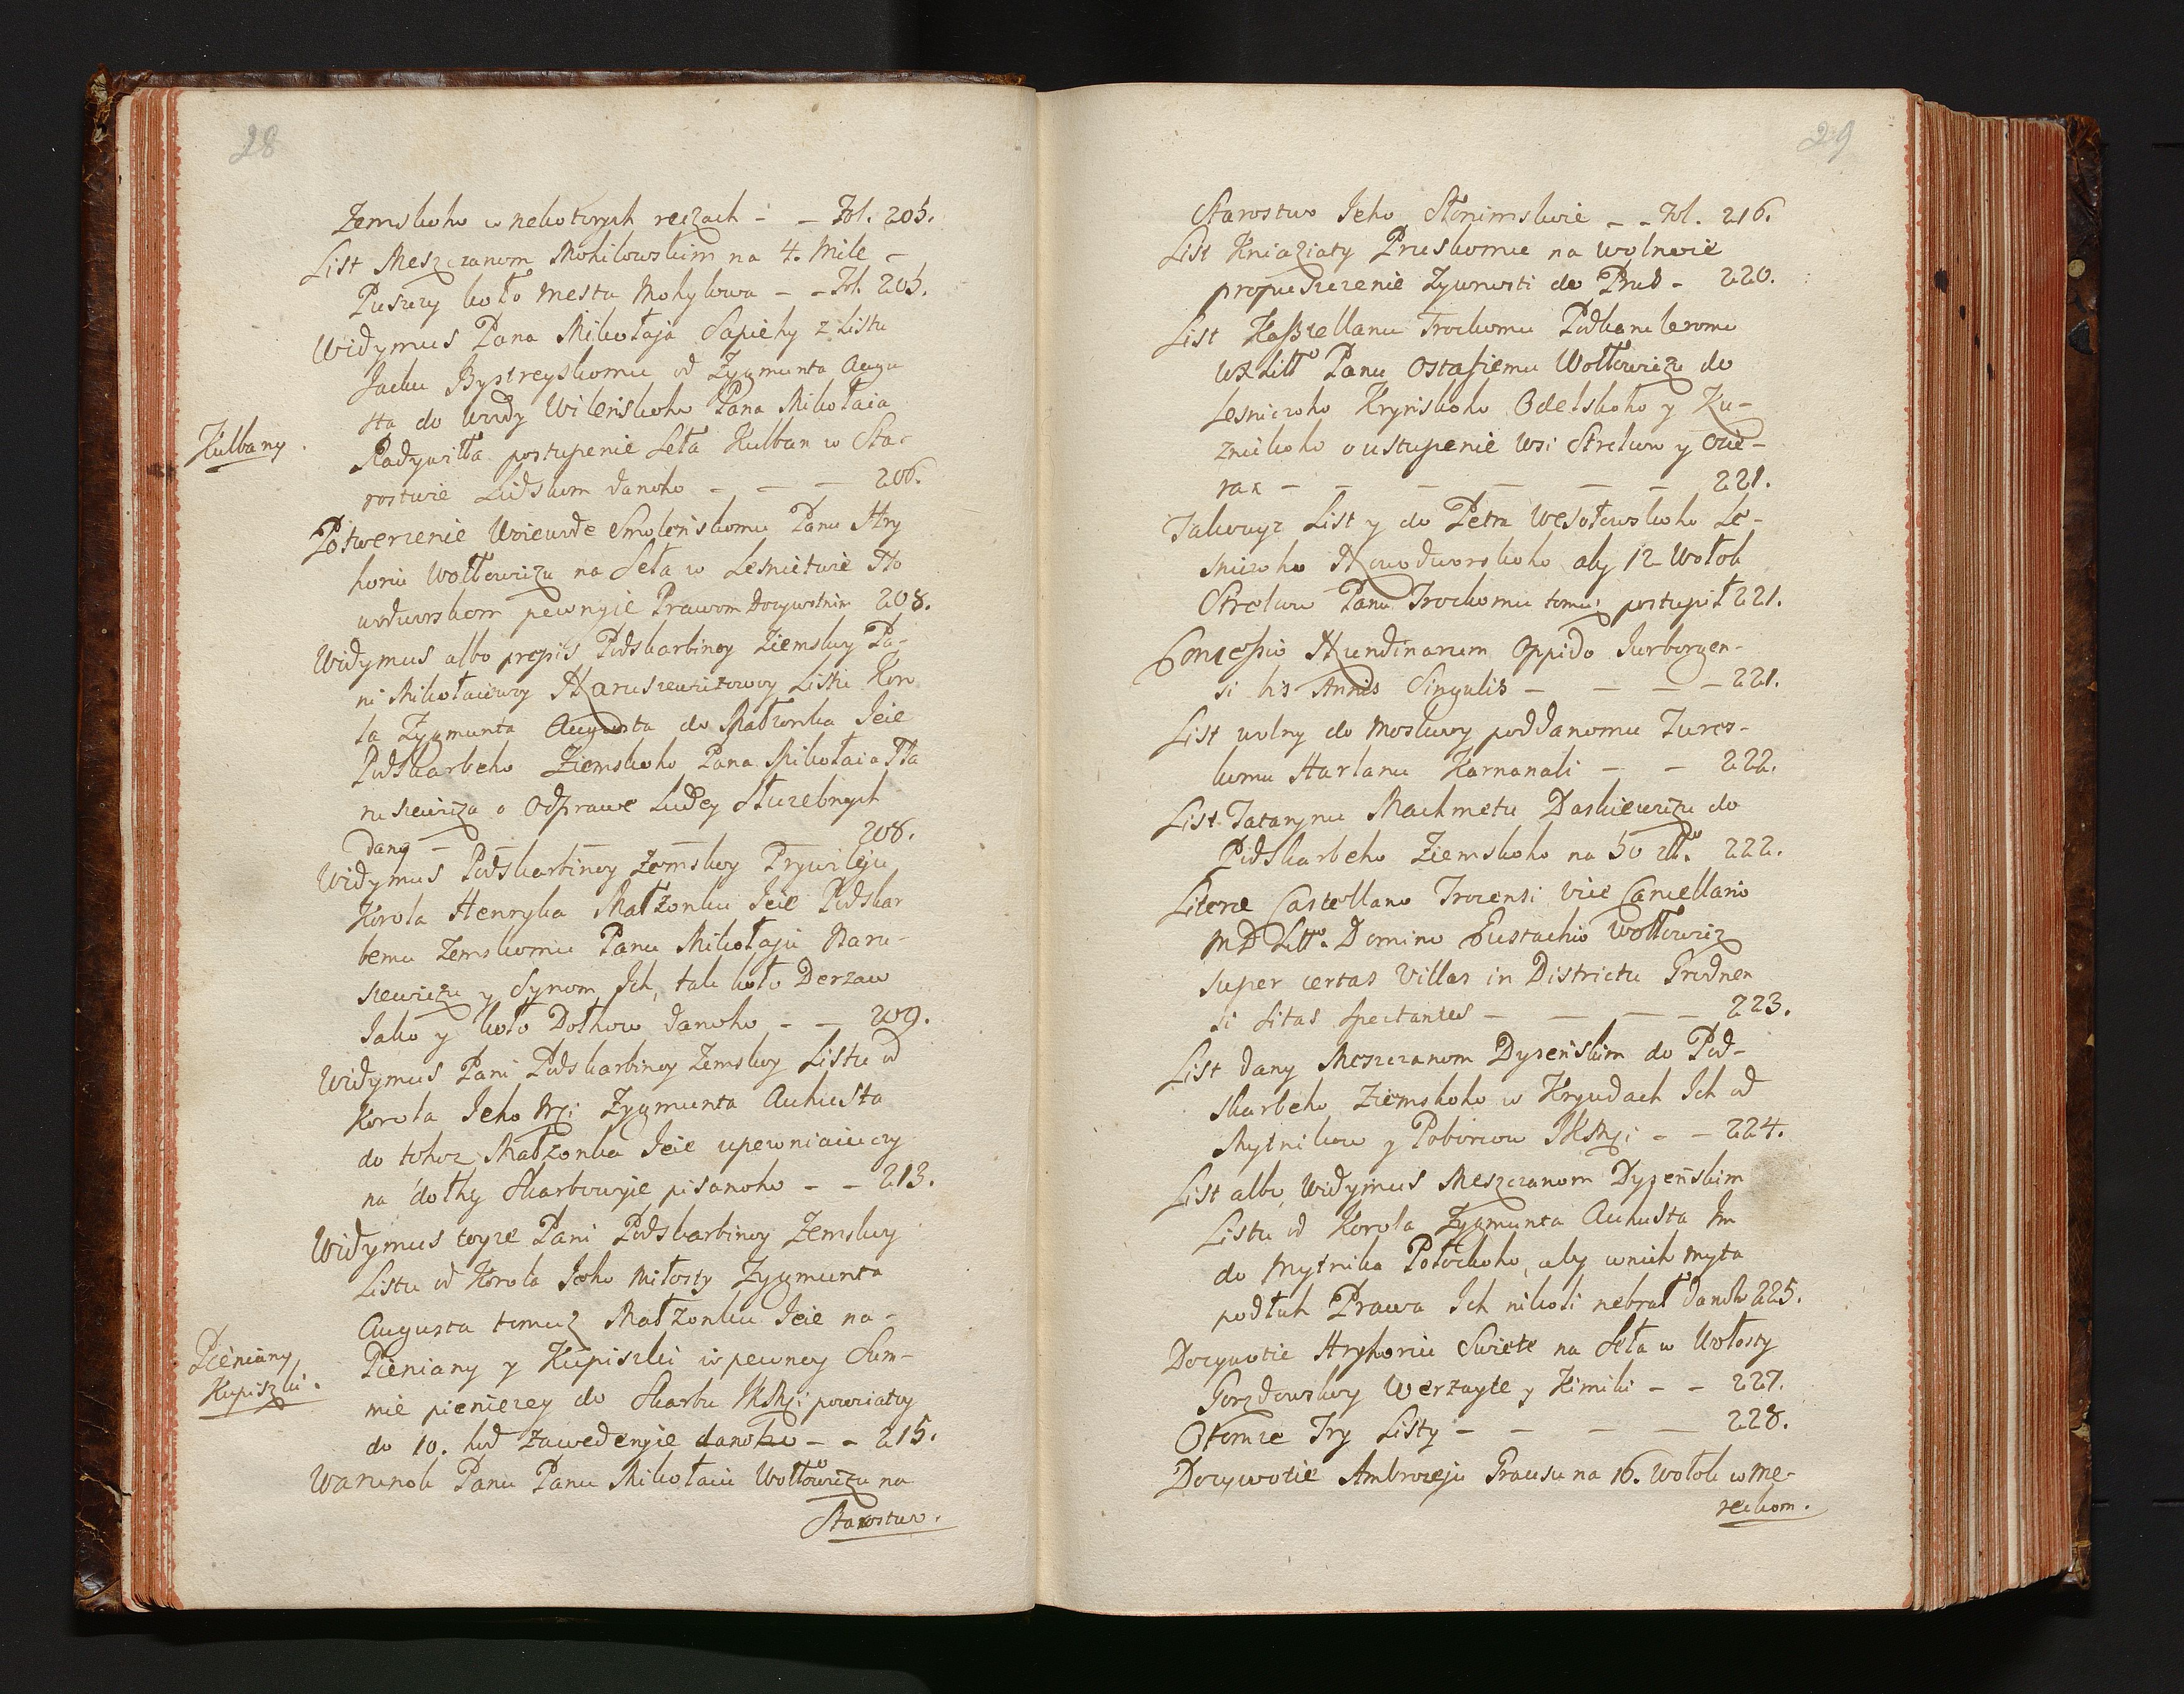 28
Zemskoho w nekotorych reczach - - Fol. 205.
List Meszczanom Mohilowskim na 4. Mile
Puszczy koło Mesta Mohylowa - - Fol. 205.
Widymus Pana Mikołaja Sapiehy z Listu
Jacku Bystreyskomu od Zygmunta Augu
sta do Wdy Wileńskoho Pana Mikołaia
Kulbany.
Radywiłła postupenie Seła Kulban w Sta-
rostwie Lidskom danoho - - - 206.
Potwerzenie Woiewode Smoleńskomu Panu Hry
horiu Wołłowiczu na Seła w Lesnictwie No
wodworskom pewnyie Prawom Dozywotnim 208.
Widymus albo propis Podskarbinoy Ziemskoy Pa-
ni Mikołaiowoy Naruszewiczowoy Listu Koro
la Zygmunta Augusta do Małzonka Jeie
Podskarbeho Ziemskoho Pana Mikołaia Na
ruszewicza o Odprawe Ludey Służebnych
dany - - - - 208.
Widymus Podskarbinoy Zemskoy Prywileju
Korola Henryka Małżonku Jeie Podskar
bemu Zemskomu Panu Mikołaju Naru-
szewiczu y Synom Ich, tak koło Derzaw
Jako y koło Dołhow danoho - - 209.
Widymus Pani Podskarbinoy Zemskoy Listu od
Korola Jeho Mci Zygmunta Auhusta
do tohoz Małżonka Jeie upewniaiuczy
na dołhy Skarbowyie pisanoho - - 213.
Widymus toyze Pani Podskarbinoy Zemskoy
Listu od Korola Jeho Miłosty Zygmunta
Augusta tomuz Małżonku Jeie na-
Pieniany,
Kupiszki.
Pieniany y Kupiszki w pewnoy Sum-
mie pieniezey do Skarbu JKMci powziatoy
do 10. hod Zawedenyie danoho - - 215.
Warunok Panu Panu Mikołaiu Wołłowiczu na
Starostwo.
29
Starostwo Jeho Słonimskoie - - Fol. 216.
List Kniaziaty Pruskomu na wolnoie
propuszczenie Zywnosti do Prus - 220.
List Kasztellanu Trockomu Podkancleromu
WX Litt° Panu Ostafiemu Wołłowiczu do
Lesniczoho Kryńskoho Odelskoho y Ku-
znickoho o ustupenie Wsi Strelcow y Ozie-
rax - - - - - - 221.
Takowyż List y do Petra Wesołowskoho Le-
sniczoho Nowodworskoho aby 12 Wołok
Strelcow Panu Trockomu tomuż postupił 221.
Concessio Nundinarum Oppido Jurborgen-
si bis Annis Singulis - - - - 221.
List wolny do Moskwy poddanomu Turec-
komu Harlanu Karnanali - - 222.
List Tatarynu Machmetu Daskiewiczu do
Podskarbeho Ziemskoho na 50 zł°. 222.
Literæ Castellano Trocensi Vice Cancellario
MD Litt°. Domino Eustachio Wołłowicz
super certas Villas in Districtu Grodnen
si sitas spectantes - - - - 223.
List dany Meszczanom Dyseńskim do Pod-
skarbeho Ziemskoho w Krywdach Ich od
Mytnikow y Poborcow JKMci - - 224.
List albo Widymus Meszczanom Dyseńskim
Listu od Korola Zygmunta Auhusta Im
do Mytnika Połockoho, aby w nich myta
podłuh Prawa Ich nikoli nebrał danoho 225.
Dozywotie Hryhoriu Swiete na Seła w Wołosty
Gorzdowskoy Werzayte y Kimiki - - 227.
O tomze Try Listy - - - - 228.
Dozywotie Ambrozeju Grausu na 16. Wołok w Me-
reckom.